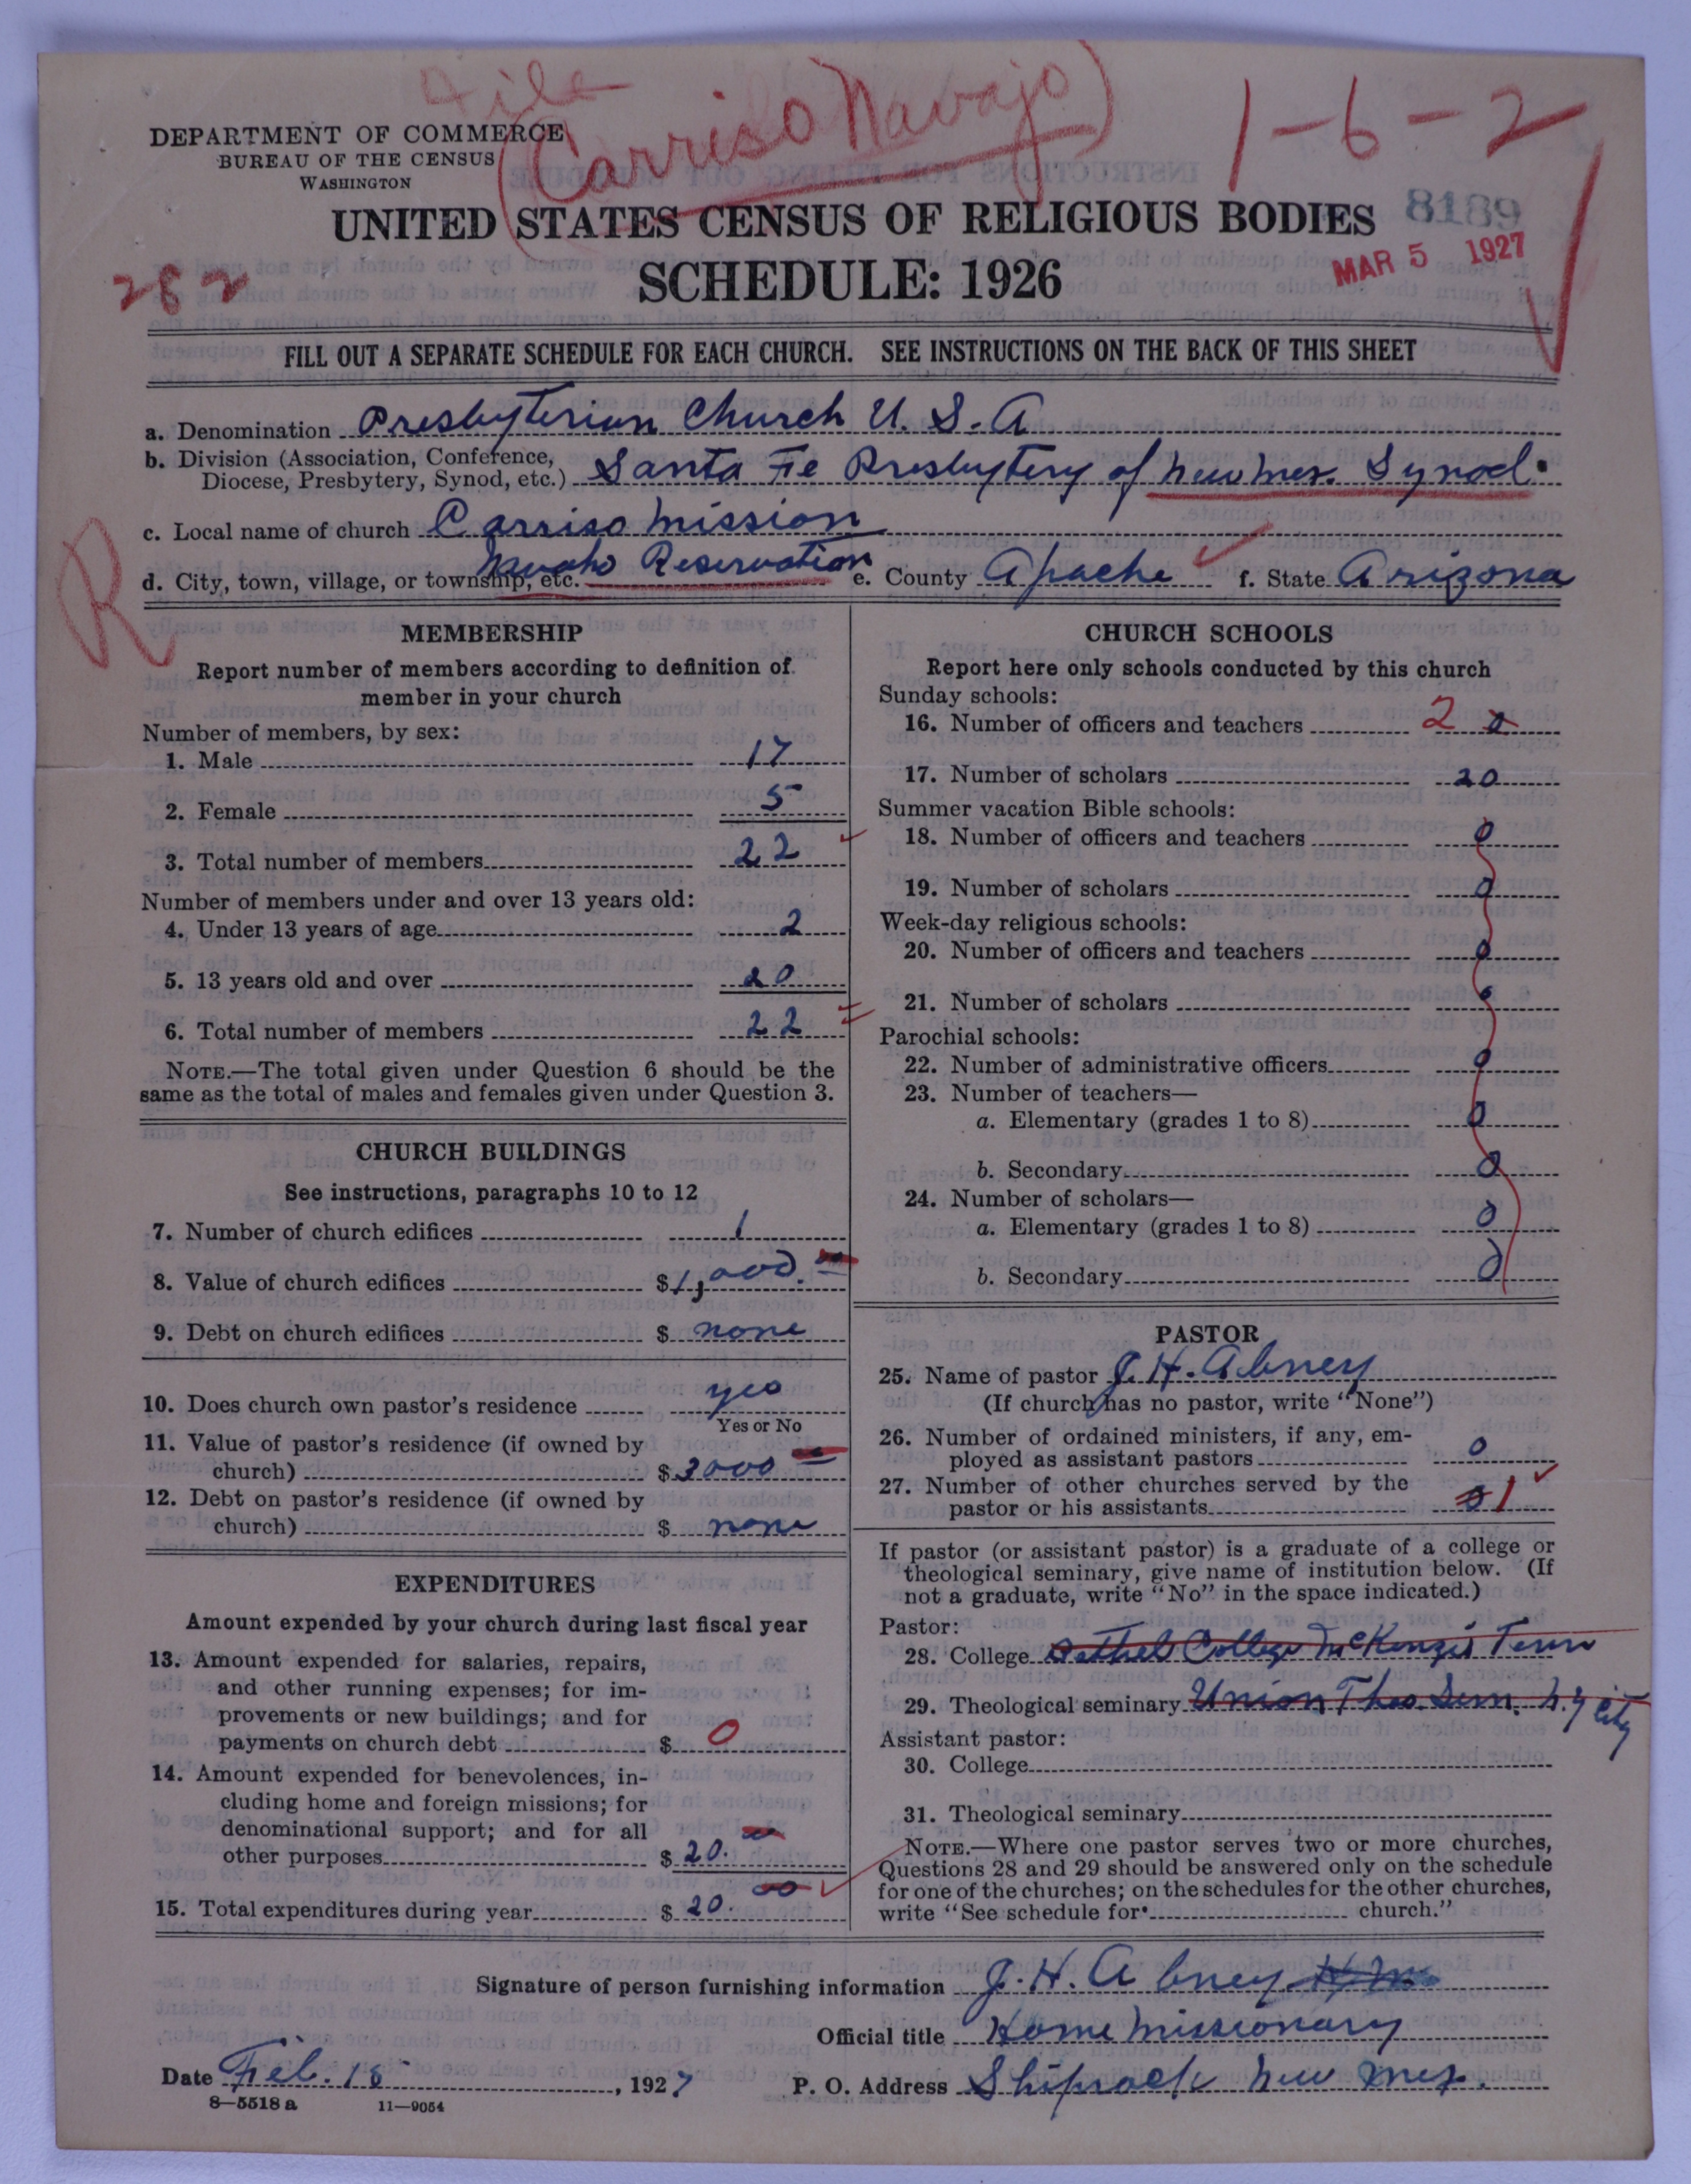 File
(Carriso Navajo)
1-6-2
DEPARTMENT OF COMMERCE
BUREAU OF THE CENSUS
WASHINGTON
UNITED STATES CENSUS OF RELIGIOUS BODIES
8189
SCHEDULE: 1926
MAR 5 1927
282
FILL OUT A SEPARATE SCHEDULE FOR EACH CHURCH. SEE INSTRUCTIONS ON THE BACK OF THIS SHEET
a. Denomination Presbyterian Church U. S. A
b. Division (Association, Conference,
Diocese, Presbytery, Synod, etc.) Santa Fe Presbytery of New Mex. Synod.
c. Local name of church Carriso Mission
R
d. City, town, village, or township, etc. Navaho Reservation e. County Apache f. State Arizona
MEMBERSHIP
Report number of members according to definition of
member in your church
Number of members, by sex:
1. Male 17
2. Female 5
3. Total number of members 22
Number of members under and over 13 years old:
4. Under 13 years of age 2
5. 13 years old and over 20
6. Total number of members 22
NOTE.—The total given under Question 6 should be the
same as the total of males and females given under Question 3.
CHURCH BUILDINGS
See instructions, paragraphs 10 to 12
7. Number of church edifices 1
8. Value of church edifices $1,000.
9. Debt on church edifices $ none
10. Does church own pastor's residence yes
Yes or No
11. Value of pastor's residence (if owned by
church) $ 3000
12. Debt on pastor's residence (if owned by
church) $ none
EXPENDITURES
Amount expended by your church during last fiscal year
13. Amount expended for salaries, repairs,
and other running expenses; for im-
provements or new buildings; and for
payments on church debt $ 0
14. Amount expended for benevolences, in-
cluding home and foreign missions; for
denominational support; and for all
other purposes $ 20. 00
15. Total expenditures during year $ 20. 00
CHURCH SCHOOLS
Report here only schools conducted by this church
Sunday schools:
16. Number of officers and teachers 2
17. Number of scholars 20
Summer vacation Bible schools:
18. Number of officers and teachers 0
19. Number of scholars 0
Week-day religious schools:
20. Number of officers and teachers 0
21. Number of scholars 0
Parochial schools:
22. Number of administrative officers 0
23. Number of teachers—
a. Elementary (grades 1 to 8) 0
b. Secondary 0
24. Number of scholars—
a. Elementary (grades 1 to 8) 0
b. Secondary 0
PASTOR
25. Name of pastor J. H. Abney
(If church has no pastor, write "None")
26. Number of ordained ministers, if any, em-
ployed as assistant pastors 0
27. Number of other churches served by the
pastor or his assistants 0 1
If pastor (or assistant pastor) is a graduate of a college or
theological seminary, give name of institution below. (If
not a graduate, write "No" in the space indicated.)
Pastor:
28. College Bethel College McKenzie Tenn
29. Theological seminary Union Theo. Sem. N. Y City
Assistant pastor:
30. College
31. Theological seminary
NOTE.—Where one pastor serves two or more churches,
Questions 28 and 29 should be answered only on the schedule
for one of the churches; on the schedules for the other churches,
write "See schedule for church."
Signature of person furnishing information J. H. Abney
Official title Home Missionary
Date Feb. 18, 1927 P. O. Address Shiprock New Mex.
8—5518 a 11—9054